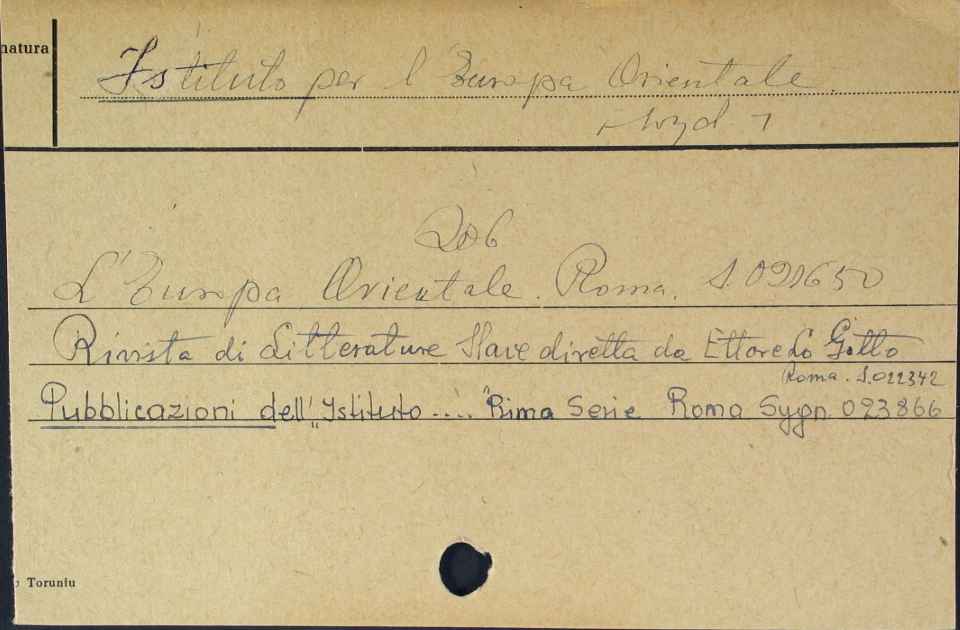 natura
Istituto per l'Europa Orientale.
wyd. 1
L'Europa Orientale. Roma. S.021650
Rivista di Litterature Slave diretta da Ettore Lo Gatto
Roma. S.022342
Pubblicazioni dell'Istituto .... Prima Serie Roma Sygn. 023866
Toruniu